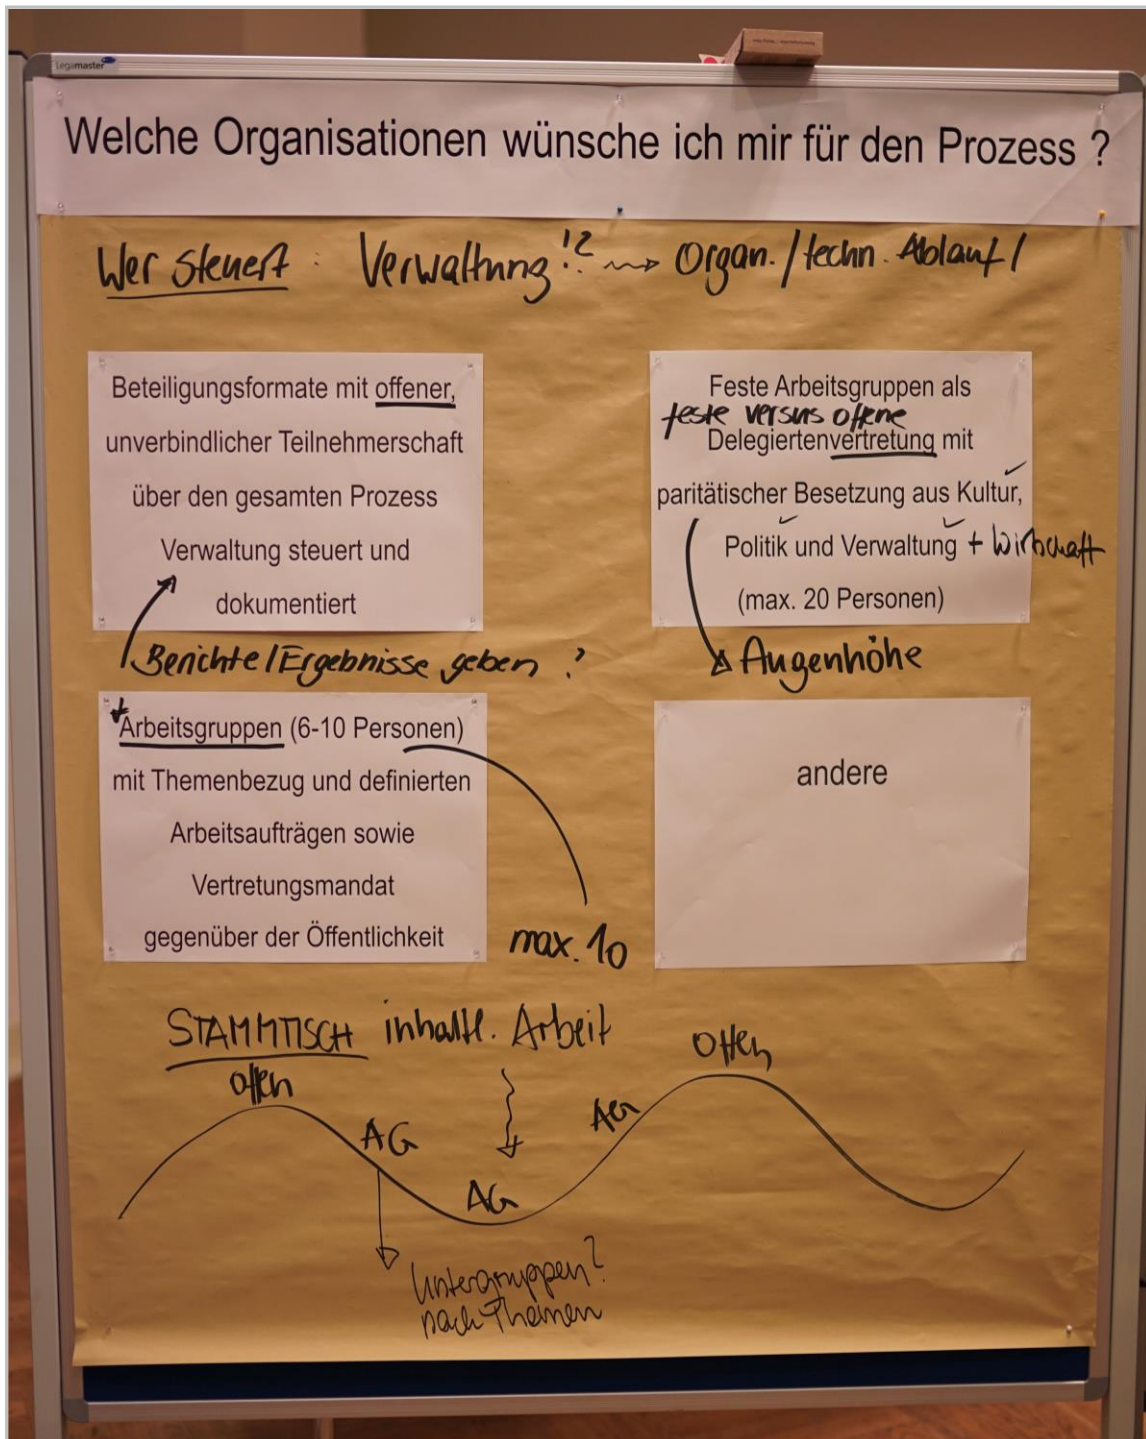 Legamaster
Welche Organisationen wünsche ich mir für den Prozess ?
Wer steuert : Verwaltung !? → Organ. / techn. Ablauf /
Beteiligungsformate mit offener,
unverbindlicher Teilnehmerschaft
über den gesamten Prozess
Verwaltung steuert und
dokumentiert
Feste Arbeitsgruppen als
feste versus offene
Delegiertenvertretung mit
paritätischer Besetzung aus Kultur,
Politik und Verwaltung + Wirtschaft
(max. 20 Personen)
Berichte / Ergebnisse geben ?
Augenhöhe
Arbeitsgruppen (6-10 Personen)
mit Themenbezug und definierten
Arbeitsaufträgen sowie
Vertretungsmandat
gegenüber der Öffentlichkeit
max. 10
andere
STAMMTISCH inhaltl. Arbeit
offen
AG
AG
AG
Offen
Untergruppen?
nach Themen